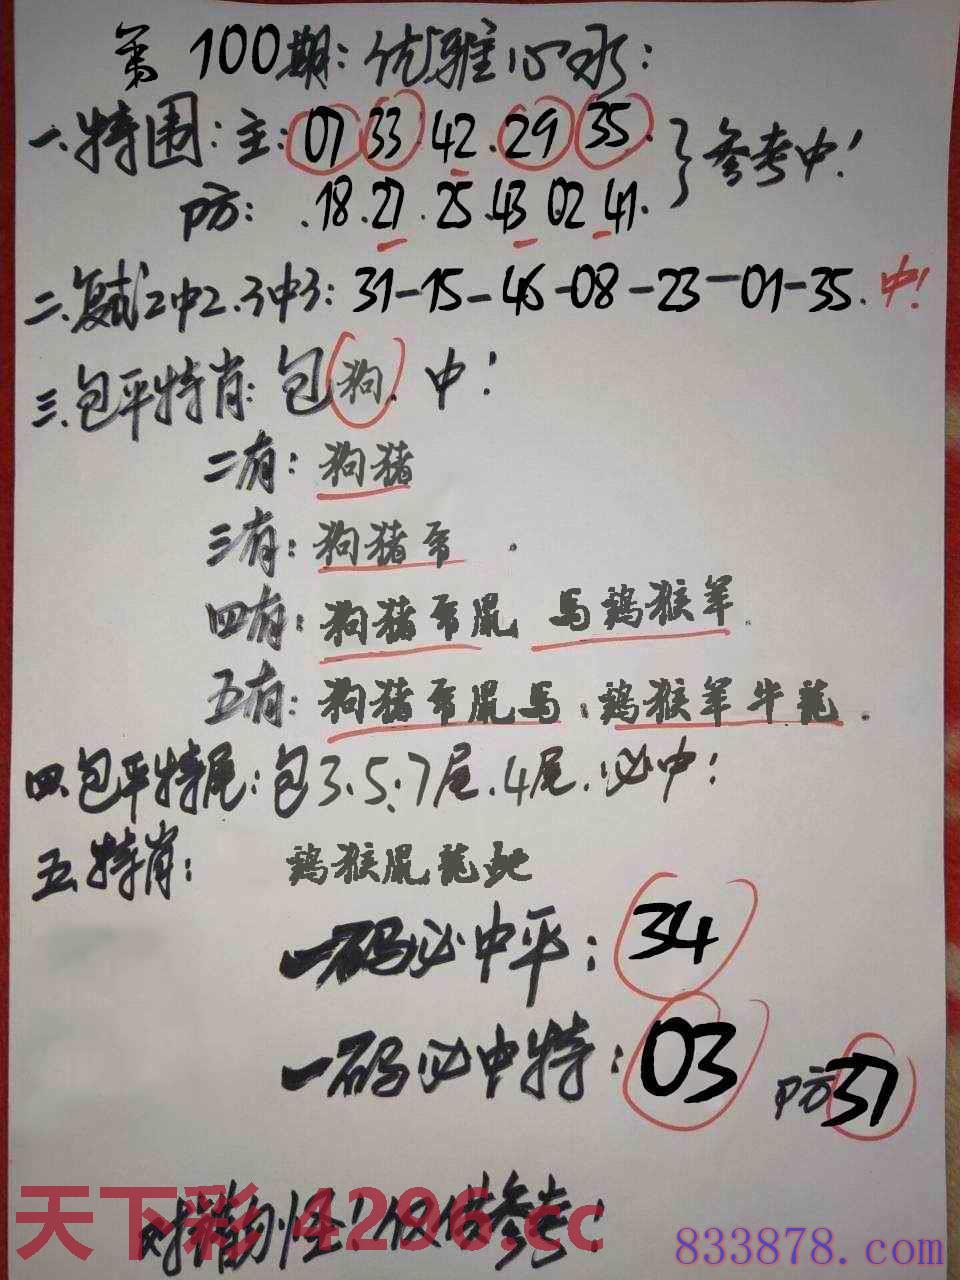 第100期:优雅心水:
一.特围:主:07 33 42.29 35.
参考中!
防:.18.27.25.43 02 41.
二.复式2中2.3中3:31-15-46-08-23-01-35.中!
三.包平特肖:包狗.中!
二有:狗猪
三有:狗猪兔.
四有:狗猪兔鼠 马鷄猴羊.
五有:狗猪兔鼠马.鷄猴羊牛龍.
四.包平特尾:包3.5.7尾.4尾.必中!
五.特肖: 鷄猴鼠龍蛇
一码必中平:34
一码必中特:03 防37
错勿怪!仅供参考!
天下彩 4296.cc
833878.com